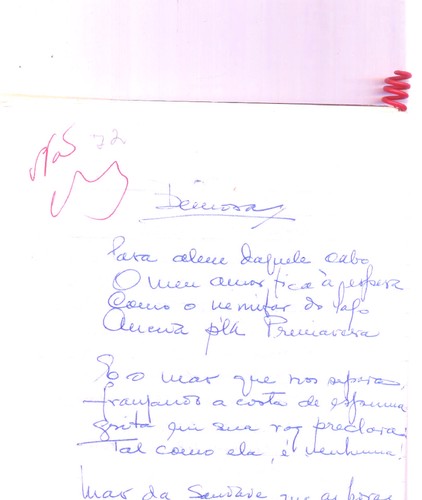 72
Demora
Para alem daquele cabo
O meu amor fica à espera
Como o nenúfar do lago
Anceia p'la Primavera
Só o mar que nos separa,
franjando a costa de espuma
grita em sua voz preclara:
Tal como ela, é nenhuma!
Mar da Saudade que as horas